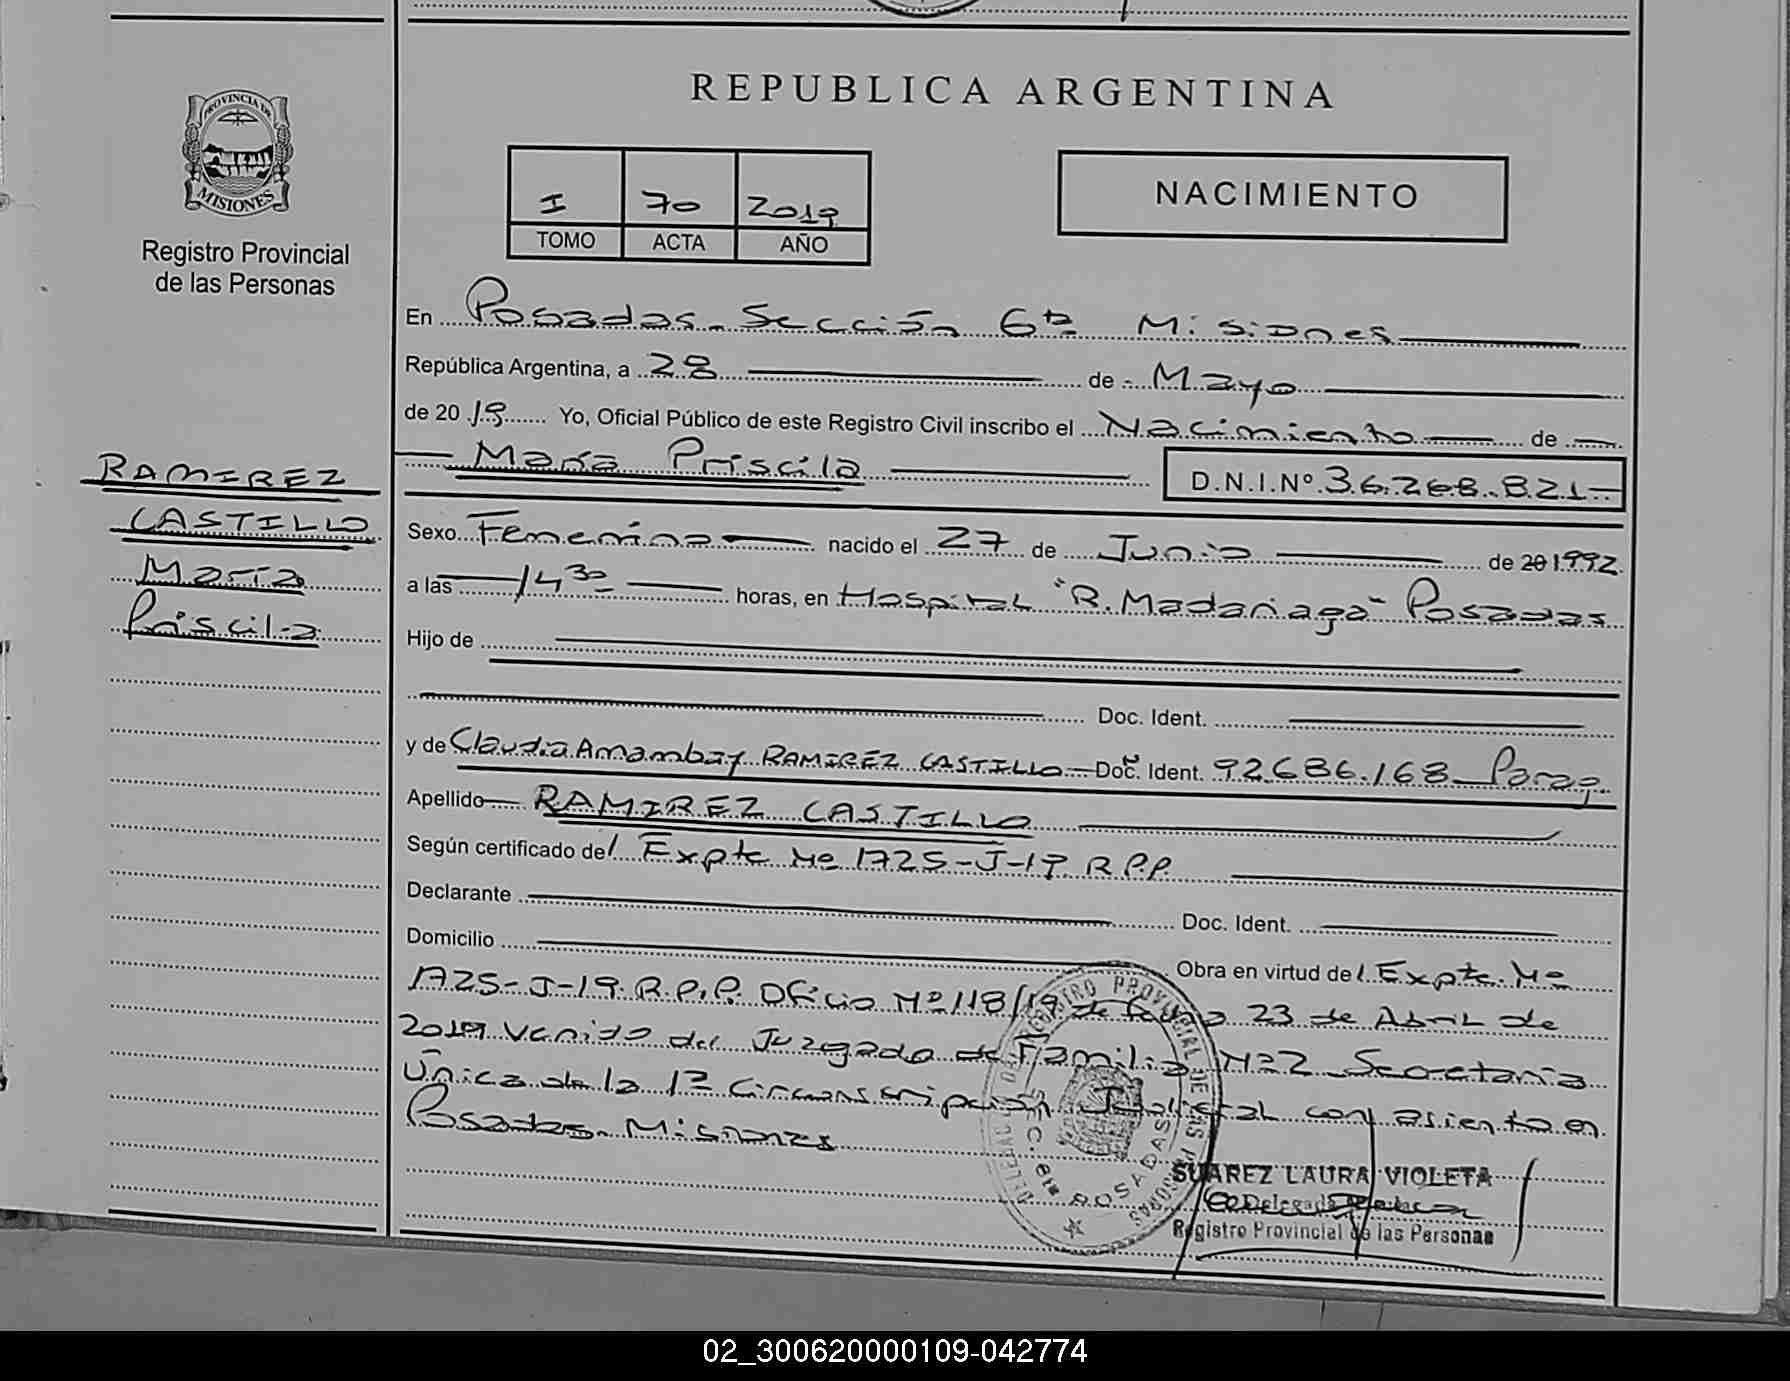 REPUBLICA ARGENTINA
PROVINCIA DE
MISIONES
Registro Provincial
de las Personas
I 70 2019
TOMO ACTA AÑO
NACIMIENTO
En Posadas Sección 6ta Misiones
República Argentina, a 28 de Mayo
de 20 19 Yo, Oficial Público de este Registro Civil inscribo el Nacimiento de
María Priscila D.N.I.Nº 36.268.821
RAMIREZ
CASTILLO
María
Priscila
Sexo Femenina nacido el 27 de Junio de 20 1992
a las 14 30 horas, en Hospital "R. Madariaga" Posadas
Hijo de
Doc. Ident.
y de Claudia Amambay RAMIREZ CASTILLO Doc. Ident. 92.686.168 Parag.
Apellido RAMIREZ CASTILLO
Según certificado del Expte Nº 1725-J-19 R.P.P.
Declarante Doc. Ident.
Domicilio Obra en virtud del Expte. Nº
1725-J-19 R.P.P. Oficio Nº 118/19 de fecha 23 de Abril de
2019 Venido del Juzgado de Familia Nº2 Secretaría
Única de la 1ª Circunscripción Judicial con asiento en
Posadas Misiones
REGISTRO PROVINCIAL DE LAS PERSONAS
POSADAS
SUAREZ LAURA VIOLETA
Registro Provincial de las Personas
02_300620000109-042774